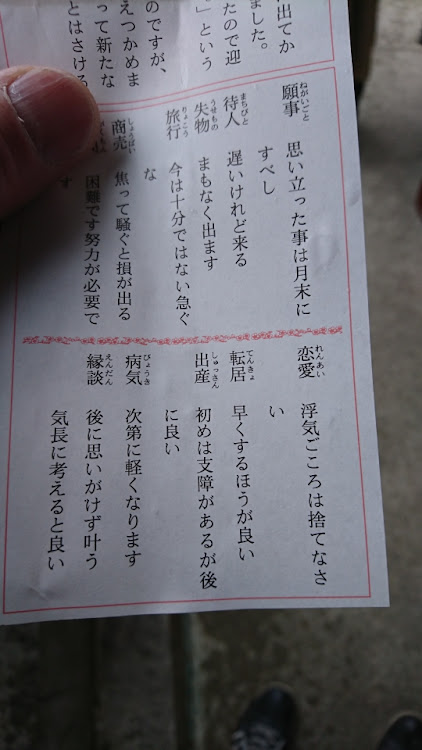 出てか
ました。
たので迎
」という
のですが、
えつかめま
って新たな
とはさける
願事 ねがいごと 思い立った事は月末に
すべし
待人 まちびと 遅いけれど来る
失物 うせもの まもなく出ます
旅行 りょこう 今は十分ではない急ぐ
な
商売 しょうばい 焦って騒ぐと損が出る
困難です努力が必要で
す
恋愛 れんあい 浮気ごころは捨てなさ
い
転居 てんきょ 早くするほうが良い
出産 しゅっさん 初めは支障があるが後
に良い
病気 びょうき 次第に軽くなります
縁談 えんだん 後に思いがけず叶う
気長に考えると良い